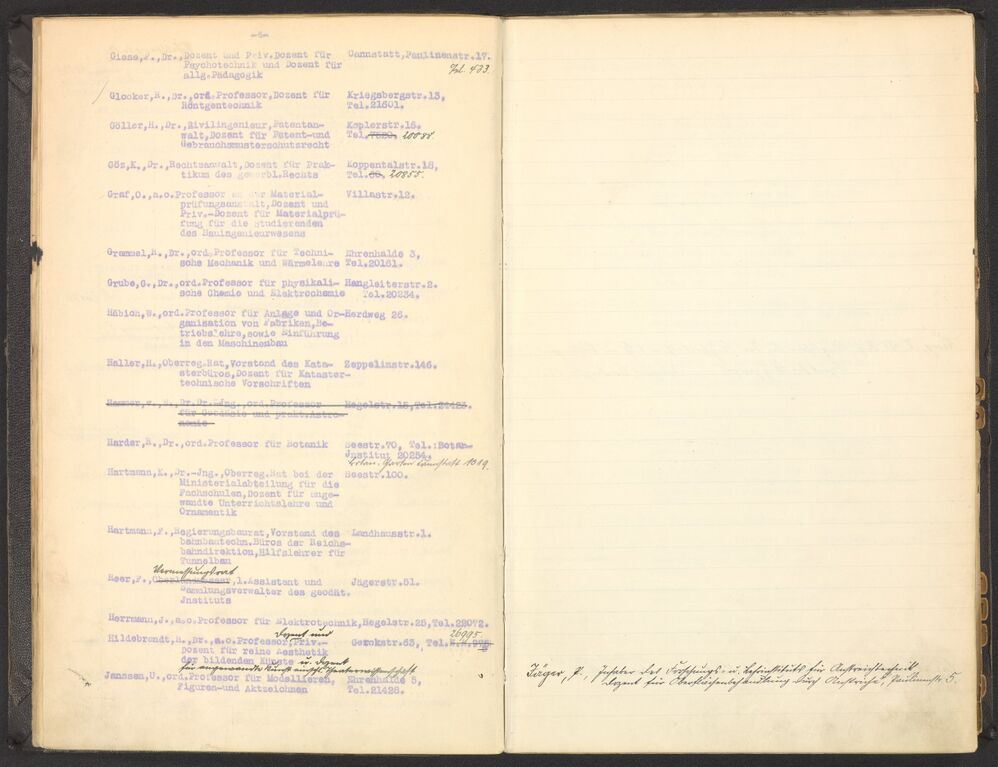 -6-
Giese,F.,Dr.,Dozent und Priv.Dozent für Cannstatt,Paulinenstr.17.
Psychotechnik und Dozent für Tel. 433.
allg.Pädagogik
Glocker,R.,Dr.,ord.Professor,Dozent für Kriegsbergstr.15,
Röntgentechnik Tel.21601.
Göller,H.,Dr.,Zivilingenieur,Patentan- Keplerstr.16.
walt,Dozent für Patent-und Tel. 20088.
Gebrauchsmusterschutzrecht
Göz,K.,Dr.,Rechtsanwalt,Dozent für Prak- Koppentalstr.18,
tikum des gewerbl.Rechts Tel. 20855.
Graf,O.,a.o.Professor an der Material- Villastr.12.
prüfungsanstalt,Dozent und
Priv.-Dozent für Materialprü-
fung für die Studierenden
des Bauingenieurwesens
Grammel,R.,Dr.,ord.Professor für Techni- Ehrenhalde 3,
sche Mechanik und Wärmelehre Tel.20161.
Grube,G.,Dr.,ord.Professor für physikali- Hangleiterstr.2.
sche Chemie und Elektrochemie Tel.20234.
Häbich,W.,ord.Professor für Anlage und Or-Herdweg 26.
ganisation von Fabriken,Be-
triebslehre,sowie Einführung
in den Maschinenbau
Haller,H.,Oberreg.Rat,Vorstand des Kata- Zeppelinstr.146.
sterbüros,Dozent für Kataster-
technische Vorschriften
Hammer,v.,E.,Dr.Dr.Jng.,ord.Professor Hegelstr.15,Tel.24423.
für Geodäsie und prakt.Astro-
nomie
Harder,R.,Dr.,ord.Professor für Botanik Seestr.70, Tel.:Botan-
Jnstitut 20254.
botan. Garten Cannstatt 1319.
Hartmann,K.,Dr.-Jng.,Oberreg.Rat bei der Seestr.100.
Ministerialabteilung für die
Fachschulen,Dozent für ange-
wandte Unterrichtslehre und
Ornamentik
Hartmann,F.,Regierungsbaurat,Vorstand des Landhausstr.1.
bahnbautechn.Büros der Reichs-
bahndirektion,Hilfslehrer für
Tunnelbau
Vermessungsrat
Heer,F.,Oberlandmesser,1.Assistent und Jägerstr.51.
Sammlungsverwalter des geodät.
Jnstituts
Herrmann,J.,a.o.Professor für Elektrotechnik,Hegelstr.25,Tel.22072.
Dozent und 26995.
Hildebrandt,H.,Dr.,a.o.Professor,Priv- Gerokstr.63, Tel.
Dozent für reine Aesthetik
der bildenden Künste u. Dozent
für angewandte Kunst
Janssen,U.,ord.Professor für Modellieren, Ehrenhalde 5,
Figuren-und Aktzeichnen Tel.21428.
Jäger, P., Inhaber des Forschungs- u. Lehrinstituts für Anstrichtechnik
Dozent für Oberflächenbehandlung durch Anstriche, Paulinenstr. 5.